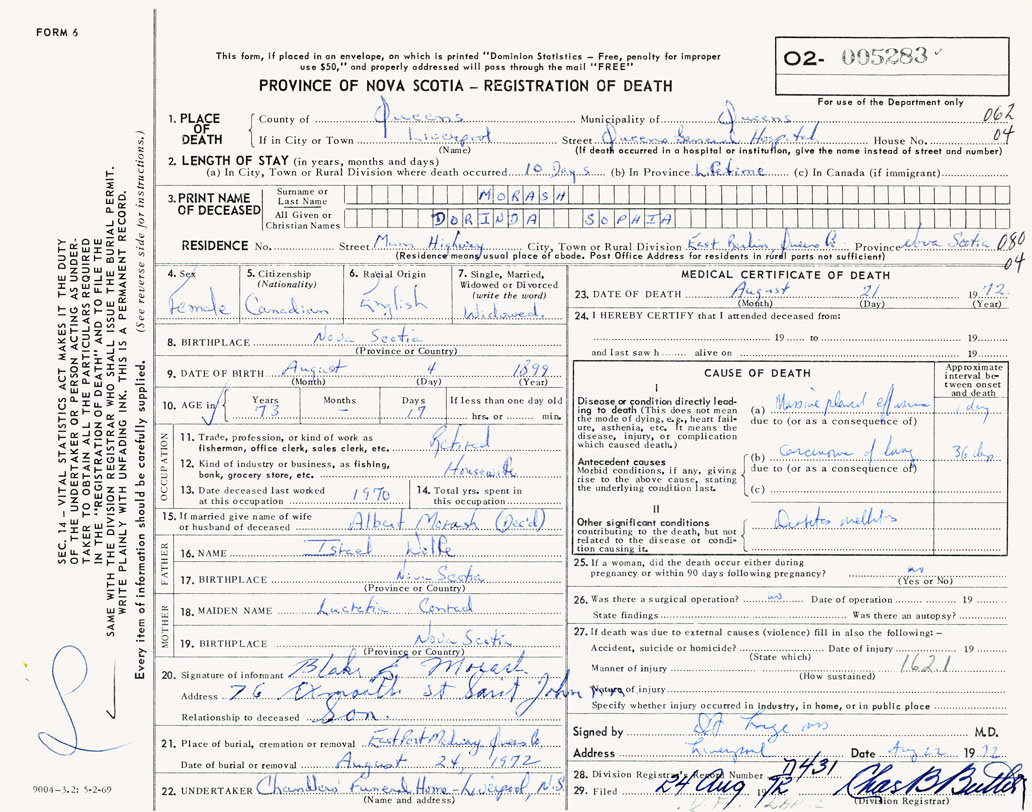 FORM 6
O2- 005283
For use of the Department only
This form, if placed in an envelope, on which is printed "Dominion Statistics – Free, penalty for improper
use $50," and properly addressed will pass through the mail "FREE"
PROVINCE OF NOVA SCOTIA – REGISTRATION OF DEATH
1. PLACE OF DEATH
County of Queens Municipality of Queens 062
If in City or Town Liverpool Street Queens General Hospital House No. 04
(Name) (If death occurred in a hospital or institution, give the name instead of street and number)
2. LENGTH OF STAY (in years, months and days)
(a) In City, Town or Rural Division where death occurred 10 Days (b) In Province Lifetime (c) In Canada (if immigrant)
3. PRINT NAME OF DECEASED
Surname or Last Name MORASH
All Given or Christian Names DORINDA SOPHIA
RESIDENCE No. Street Main Highway City, Town or Rural Division East Berlin, Queens Co Province Nova Scotia 080
(Residence means usual place of abode. Post Office Address for residents in rural parts not sufficient) 04
4. Sex Female
5. Citizenship (Nationality) Canadian
6. Racial Origin English
7. Single, Married, Widowed or Divorced (write the word) Widowed.
8. BIRTHPLACE Nova Scotia
(Province or Country)
9. DATE OF BIRTH August 4 1899
(Month) (Day) (Year)
10. AGE in Years 73 Months – Days 17 If less than one day old
hrs. or min.
OCCUPATION
11. Trade, profession, or kind of work as
fisherman, office clerk, sales clerk, etc. Retired
12. Kind of industry or business, as fishing,
bank, grocery store, etc. Housewife
13. Date deceased last worked
at this occupation 1970
14. Total yrs. spent in
this occupation
15. If married give name of wife
or husband of deceased Albert Morash (Dec'd)
FATHER
16. NAME Israel Wolfe
17. BIRTHPLACE Nova Scotia
(Province or Country)
MOTHER
18. MAIDEN NAME Lucretia Conrad
19. BIRTHPLACE Nova Scotia
(Province or Country)
20. Signature of informant Blake E. Morash
Address 76 Exmouth St Saint John NB
Relationship to deceased Son.
21. Place of burial, cremation or removal East Port Medway Queens Co.
Date of burial or removal August 24, 1972
22. UNDERTAKER Chandlers Funeral Home – Liverpool, N.S.
(Name and address)
MEDICAL CERTIFICATE OF DEATH
23. DATE OF DEATH August 21 1972.
(Month) (Day) (Year)
24. I HEREBY CERTIFY that I attended deceased from:
19 to 19
and last saw h alive on 19
CAUSE OF DEATH
Approximate interval between onset and death
I
Disease or condition directly lead-
ing to death (This does not mean
the mode of dying, e.g., heart fail-
ure, asthenia, etc. It means the
disease, injury, or complication
which caused death.)
(a) Massive pleural effusion 1 day
due to (or as a consequence of)
Antecedent causes
Morbid conditions, if any, giving
rise to the above cause, stating
the underlying condition last.
(b) Carcinoma of lung 36 days
due to (or as a consequence of)
(c)
II
Other significant conditions
contributing to the death, but not
related to the disease or condi-
tion causing it.
Diabetes mellitus
25. If a woman, did the death occur either during
pregnancy or within 90 days following pregnancy? no
(Yes or No)
26. Was there a surgical operation? no Date of operation 19
State findings Was there an autopsy?
27. If death was due to external causes (violence) fill in also the following: –
Accident, suicide or homicide? Date of injury 19
(State which)
Manner of injury 162.1
(How sustained)
Nature of injury
Specify whether injury occurred in industry, in home, or in public place
Signed by M.D.
Address Liverpool Date Aug 22 1972
28. Division Registrar's Record Number 7431
29. Filed 24 Aug 1972 Chas B Butler
(Division Registrar)
SEC. 14 – VITAL STATISTICS ACT MAKES IT THE DUTY
OF THE UNDERTAKER OR PERSON ACTING AS UNDER-
TAKER TO OBTAIN ALL THE PARTICULARS REQUIRED
IN THE "REGISTRATION OF DEATH" AND TO FILE THE
SAME WITH THE DIVISION REGISTRAR WHO SHALL ISSUE THE BURIAL PERMIT.
WRITE PLAINLY WITH UNFADING INK. THIS IS A PERMANENT RECORD.
Every item of information should be carefully supplied. (See reverse side for instructions.)
9004–3.2: 5-2-69